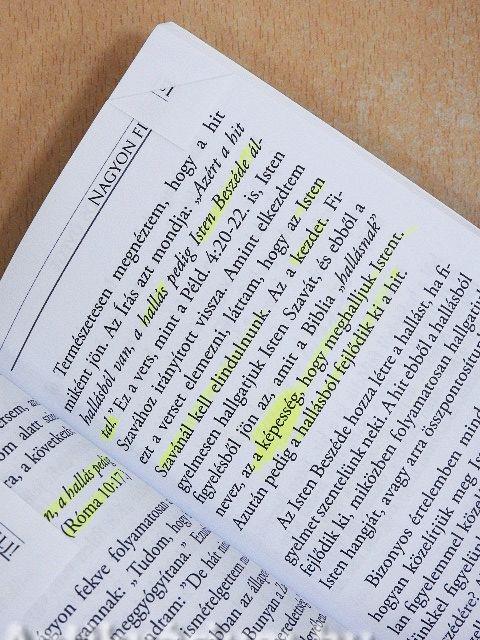 NAGYON FI
Természetesen megnéztem, hogy a hit
miként jön. Az Írás azt mondja: „Azért a hit
hallásból van, a hallás pedig Isten Beszéde ál-
tal.” Ez a vers, mint a Péld. 4:20-22. is, Isten
Szavához irányított vissza. Amint elkezdtem
ezt a verset elemezni, láttam, hogy az Isten
Szavánál kell elindulnunk. Az a kezdet. Fi-
gyelmesen hallgatjuk Isten Szavát, és ebből a
figyelésből jön az, amit a Biblia „hallásnak”
nevez, az a képesség, hogy meghalljuk Istent.
Azután pedig a hallásból fejlődik ki a hit.
Az Isten Beszéde hozza létre a hallást, ha fi-
gyelmet szentelünk neki. A hit ebből a hallásból
fejlődik ki, miközben folyamatosan hallgatjuk
Isten hangját, avagy arra összpontosítun
Bizonyos értelemben mind
hogyan közelítjük meg Is
lan figyelemmel közel
figyelün
vérjétek?” A
om alatt
ra, a követke
n, a hallás pedi
(Róma 10:17)
gyon fekve folyamatosan
amnak: „Tudom, hog
meggyógyítana.”
tam: „De hát
ismételgettem
ban az állap
Bunyan